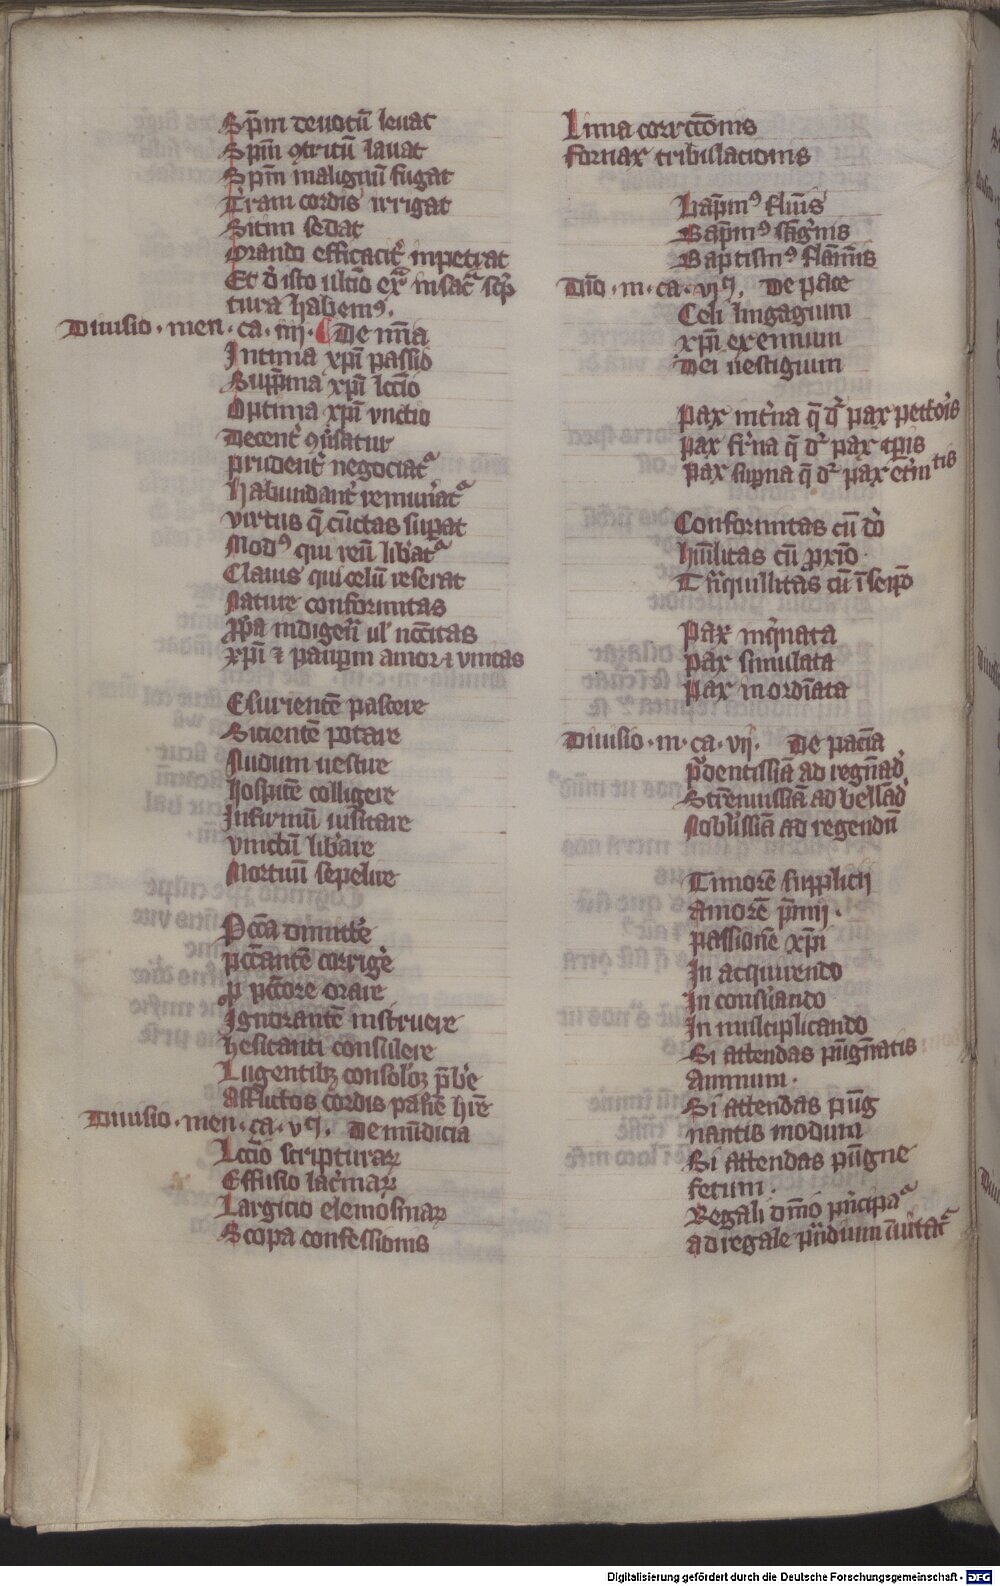 Sp̄m deuotū leuat
Sp̄m ꝯtritū lauat
Sp̄m malignū fugat
T̄ram cordis irrigat
Sitim sedat
Orando efficacit᷑ inpetrat
Et d̓ isto ultīo exͫ in sac᷑ sc͛p
tura habemꝰ.
Diuisio · men · ca · iiij · ¶ De mīa
Intima xp̄i passio
Supp̄ma xp̄i lcc̄io
Optima xp̄i vnctio
Decent᷑ ꝯūsatur
prudent᷑ negociat᷑
habundant᷑ remun̄at᷑
virtus q̄ cūctas sup̄at
Modꝰ qui reū lib̄at᷑
Clauis qui celū reserat
Nature conformitas
ꝓp̄a indigen̄ ul᷑ nc̄citas
xp̄i ⁊ paup̄m amor ⁊ vnitas
Esurientē pascere
Sicientē potare
Nudum uestire
hospitē colligere
Infirmū uisitare
vinctū lib̄are
Mortuū sepelire
Pcc̄a dimitt̄e
pcc̄antē corriḡe
ꝓ pcc̄ore orare
Ignorantē instruere
hesitanti consulere
Lugentibꝫ consoloꝫ p̄b̄e
afflictos cordis pasīe h̄re
Diuisio · men · ca · vᵐ. De mūdicia
Lcc̄io scripturaꝝ
Effusio lac̄maꝝ
Largicio elemosinaꝝ
Scopa confessionis
Lima correctōnis
fornax tribulacionis
Bap̄mꝰ flūis
Bap̄mꝰ sāg̓nis
Baptismꝰ flām̄is
Diō · m · ca · vjᵐ. De pace
Celi lingagium
xp̄i exennium
Dei uestigium
Pax int̄na q̄ d᷑ pax pectoris
pax fr̄na q̄ d᷑ pax tp̄is
pax sup̄na q̄ d᷑ pax et̄nitis
Conformitas cū dō
hūilitas cū ꝓxīo
Tn̄quillitas cū ī seipō
Pax inq̓nata
pax simulata
pax inordīata
Diuisio · m · ca · vij · De pacīa
p᷑dentissīā ad regnād̓
Strēnuissīā ad bellād̓
Nobilissīā ad regendū
Timorē supplicij
amorē p̄mij.
passionē xp̄i
In acquirendo
In consūando
In multiplicando
Si attendas pūgn̄atis
animum.
Si attendas pūg
nantis modum
Si attendas pūgne
fetum.
Regali dīno pn̄cipa᷑
ad regale pn̄diū īuitat᷑
Digitalisierung gefördert durch die Deutsche Forschungsgemeinschaft - DFG